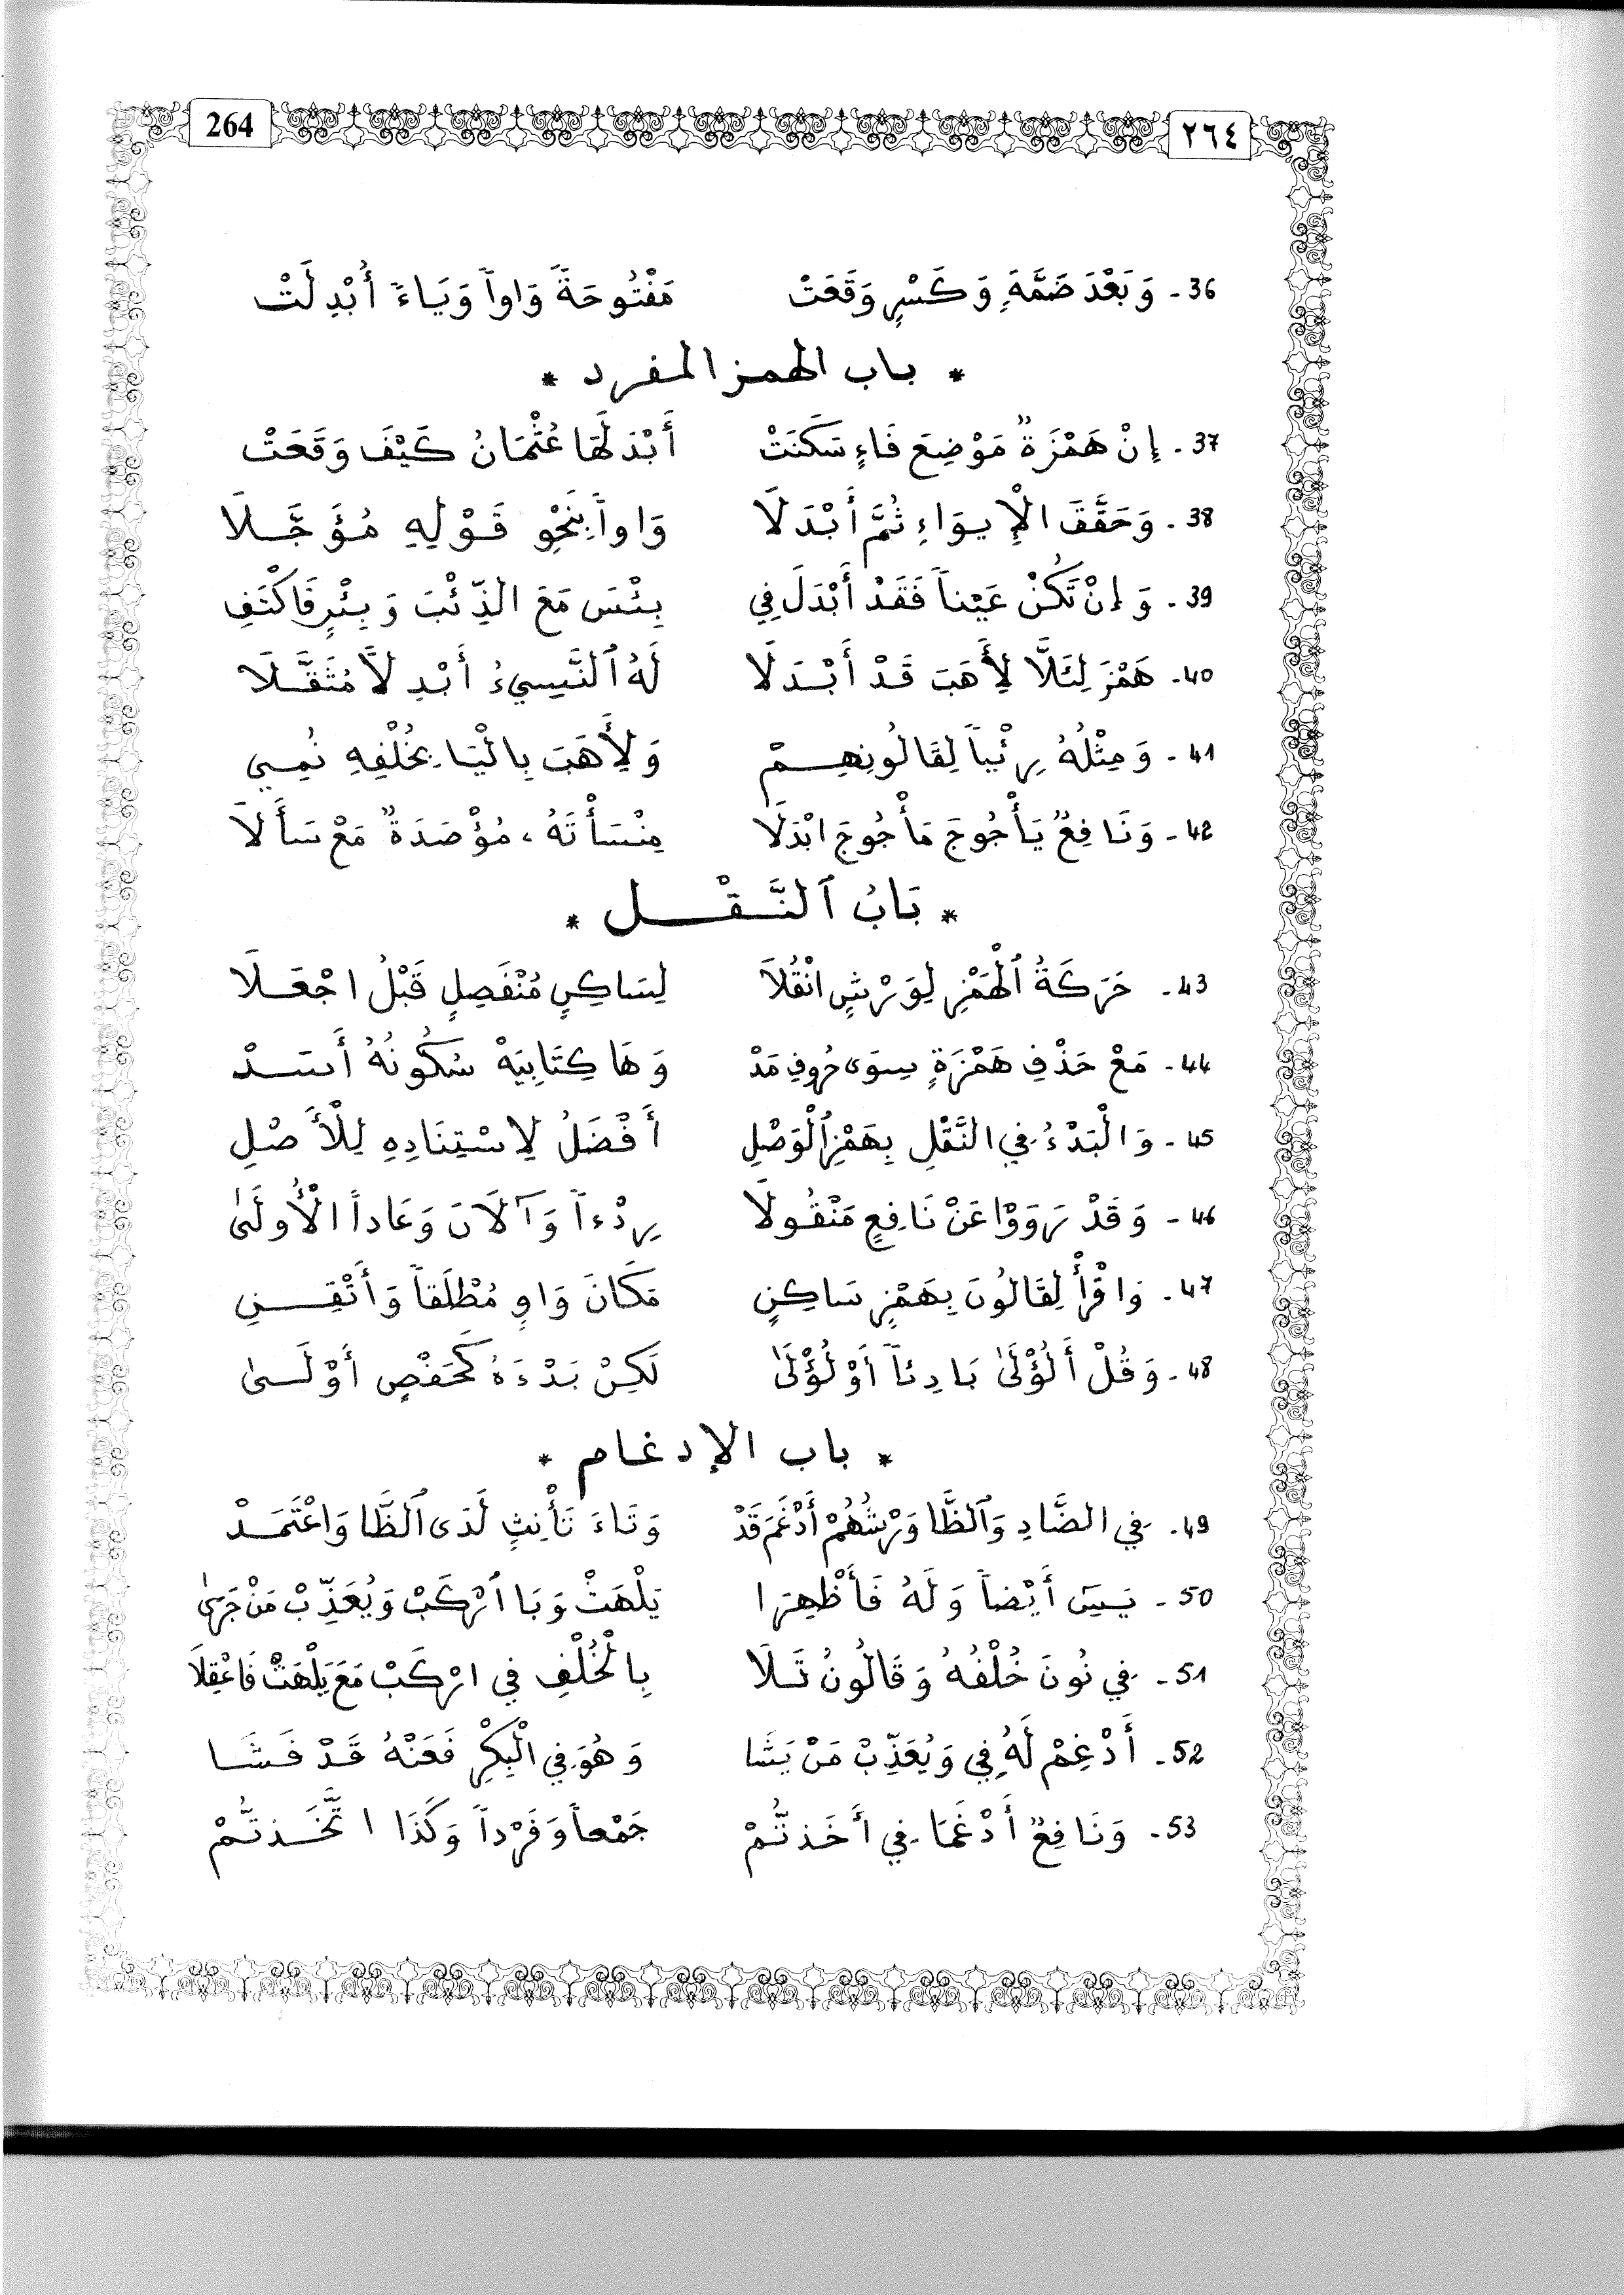 264 ٢٦٤
36- وَبَعْدَ ضَمَّةٍ وَكَسْرٍ وَقَعَتْ مَفْتُوحَةً وَاواً وَيَاءً أُبْدِلَتْ
* باب الهمز المفرد *
37- إِنْ هَمْزَةٌ مَوْضِعَ فَاءٍ سَكَنَتْ أَبْدَلَهَا عُثْمَانُ كَيْفَ وَقَعَتْ
38- وَحَقَّقَ الْإِيوَاءِ ثُمَّ أَبْدَلَا وَاواً بِنَحْوِ قَوْلِهِ مُؤَجَّلَا
39- وَإِنْ تَكُنْ عَيْناً فَقَدْ أَبْدَلَ فِي بِئْسَ مَعَ الذِّئْبَ وَبِئْرٍ فَاكْتَفِ
40- هَمْزَ لِئَلَّا لِأَهَبَ قَدْ أَبْدَلَا لَهُ ٱلنَّسِيءُ أَبْدِلَاً مُثَقَّلَا
41- وَمِثْلُهُ رِئْياً لِقَالُونِهِمْ وَلِأَهَبَ بِالْيَا بِخُلْفِهِ نُمِي
42- وَنَافِعٌ يَأْجُوجَ مَأْجُوجَ ابْدَلَا مِنْسَأْتَهُ، مُؤْصَدَةٌ مَعْ سَأَلَا
* بَابُ ٱلنَّقْل *
43- حَرَكَةُ ٱلْهَمْزِ لِوَرْشٍ انْقُلَا لِسَاكِنٍ مُنْفَصِلٍ قَبْلُ اجْعَلَا
44- مَعْ حَذْفِ هَمْزَةٍ سِوَى حُرُوفِ مَدْ وَهَا كِتَابِيَهْ سُكُونُهُ أَسَدْ
45- وَالْبَدْءُ فِي النَّقْلِ بِهَمْزِ ٱلْوَصْلِ أَفْضَلُ لِاسْتِنَادِهِ لِلْأَصْلِ
46- وَقَدْ رَوَوْا عَنْ نَافِعٍ مَنْقُولَا رِدْءاً وَآلَانَ وَعَاداً الْأُولَىٰ
47- وَاقْرَأْ لِقَالُونَ بِهَمْزٍ سَاكِنٍ مَكَانَ وَاوٍ مُطْلَقاً وَأَتْقِنِ
48- وَقُلْ أَلُؤْلَىٰ بَادِئاً أَوْ لُؤْلَىٰ لَكِنْ بَدْءَهُ كَحَفْصٍ أَوْلَىٰ
* باب الإدغام *
49- فِي الضَّادِ وَٱلظَّا وَرْشُهُمْ أَدْغَمَ قَدْ وَتَاءَ تَأْنِثٍ لَدَى ٱلظَّا وَاعْتَمَدْ
50- يَسِٓ أَيْضاً وَلَهُ فَأَظْهِرَا يَلْهَثْ وَبَا ٱرْكَبْ وَيُعَذِّبْ مَنْ جَرَىٰ
51- فِي نُونَ خُلْفُهُ وَقَالُونُ تَلَا بِالْخُلْفِ فِي ارْكَبْ مَعَ يَلْهَثْ فَاعْقِلَا
52- أَدْغِمْ لَهُ فِي وَيُعَذِّبْ مَنْ يَشَا وَهُوَ فِي الْبِكْرِ فَعَنْهُ قَدْ فَشَا
53- وَنَافِعٌ أَدْغَمَا فِي أَخَذتُّمْ جَمْعاً وَفَرْداً وَكَذَا اتَّخَذتُّمْ